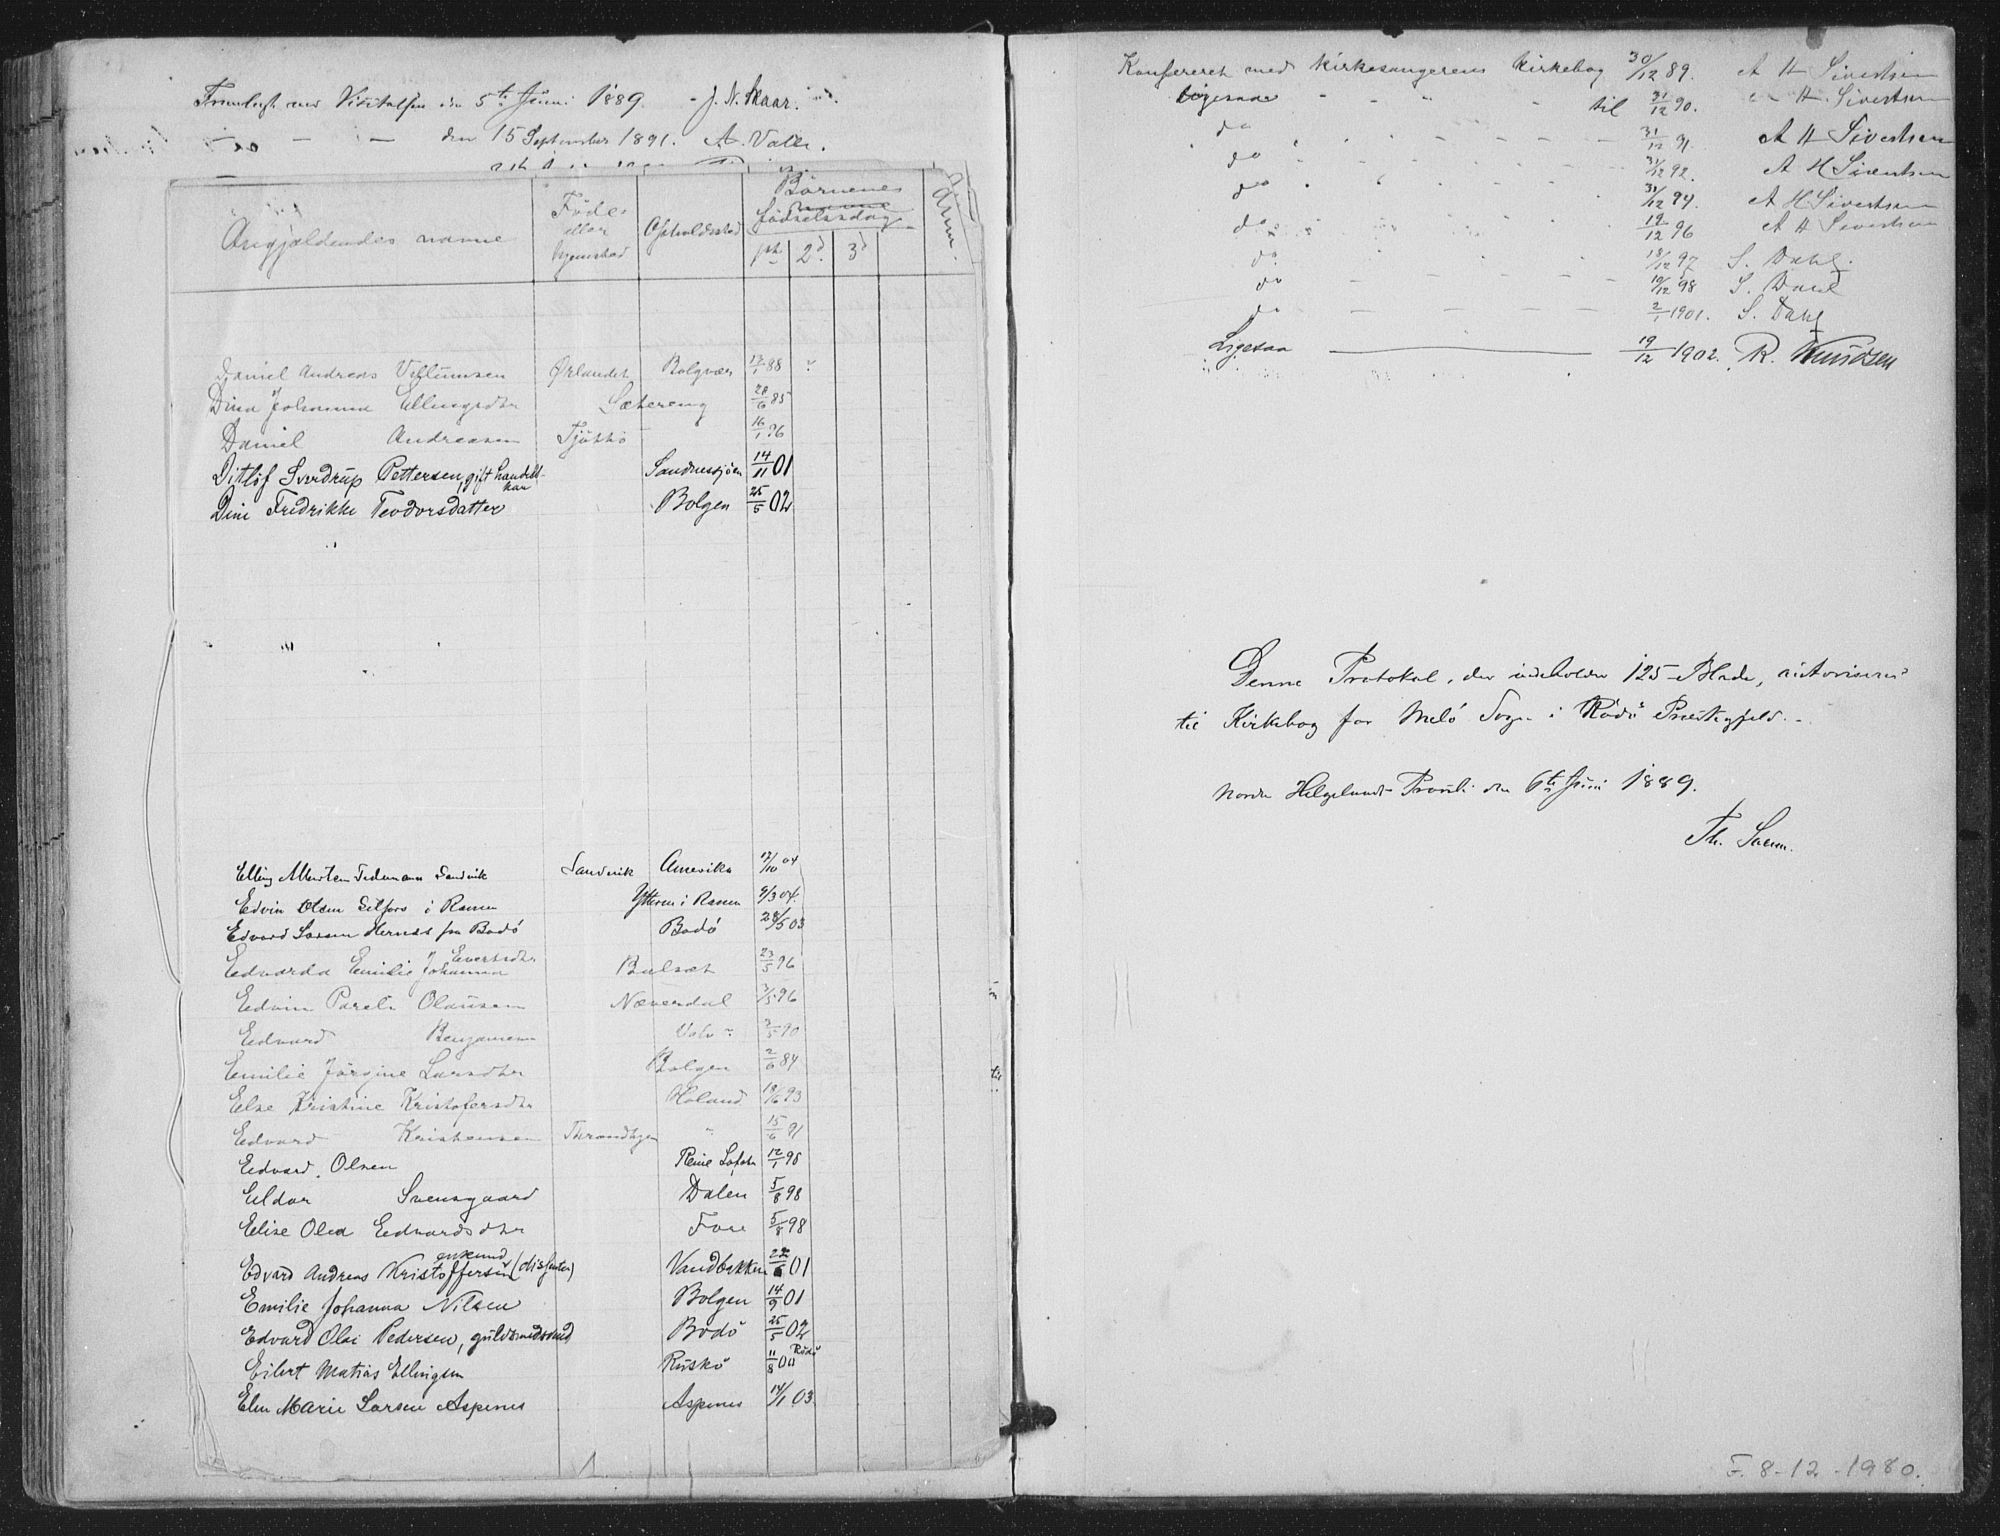 Fremlagt ved Visitatsen den 5te Juni 1889. J. N. Skaar.
— " — " — den 15 September 1891. A. Valle.
Angjældendes navne
Føde- eller hjemsted
Opholdssted
Børnenes fødselsdag
1ste 2d 3d
Anm.
Daniel Andreas Villumsen Ørlandet Bolgvær 13/1 88
Dina Johanna Ellingsdtr Sætereng 28/6 85
Daniel Andreassen Tjøttø 16/1 96
Ditlöf Sverdrup Pettersen, gift handels- Sandnessjøen 14/11 01
Dine Fredrikke Teodorsdatter Bolgen 25/5 02
Elling Morten Tidemann Sandvik Sandvik Amerika 17/10 04
Edvin Olsen Selfors i Ranen Ytteren i Ranen 9/3 04.
Edvard Larsen Hernes fra Bodö Bodö 28/5 03
Edvarda Emilie Johanna Evertsdtr Bulsæt 23/5 96
Edvin Parel. Olausen Næverdal 3/5 96
Edvard Benjaminsen 3/5 90
Emilie Jörgine Larsdtr Bolgen 2/6 84
Else Kristine Kristofersdtr Holand 18/6 93
Edvard Kristensen Throndhjem " 15/6 91
Edvard Olsen Reine Lofoten 12/1 98
Eldor Svensgaard Dalen 5/8 98
Elise Olea Edvardsdtr Fore 5/8 98
Edvard Andreas Kristoffersen (disſenter) Vandbakken 22/6 01
Emilie Johanna Nilsen Bolgen 14/9 01
Edvard Olai Pedersen, guldsmedsvend Bodö 25/5 02
Eilert Matias Ellingsen Riiskö 11/8 00 Rödö
Elen Marie Larsen Aspenes Aspenes 14/1 03
Konfereret med Kirkesangerens Kirkebog 30/12 89. A H Sivertsen
Ligesaa - - " - til 31/12 90. A H. Sivertsen
do - - - - 31/12 91. A H Sivertsen
do - - - - 31/12 92. A H Sivertsen
do - - - - 31/12 94. A H Sivertsen
do - - - - 19/12 96 A H Sivertsen
do - - - - 18/12 97 S. Dahl.
do - - - - 10/12 98 S. Dahl
do - - - - 2/1 1901. S. Dahl
Ligesaa — 19/12 1902. R. Knudsen
Denne Protokol, der indeholder 125 Blade, autoriseres
til Kirkebog for Melö Sogn i Rödö Præstegjeld. -
Nordre Helgelands Provsti den 6te Juni 1889.
Th.
F. 8-12-1980.